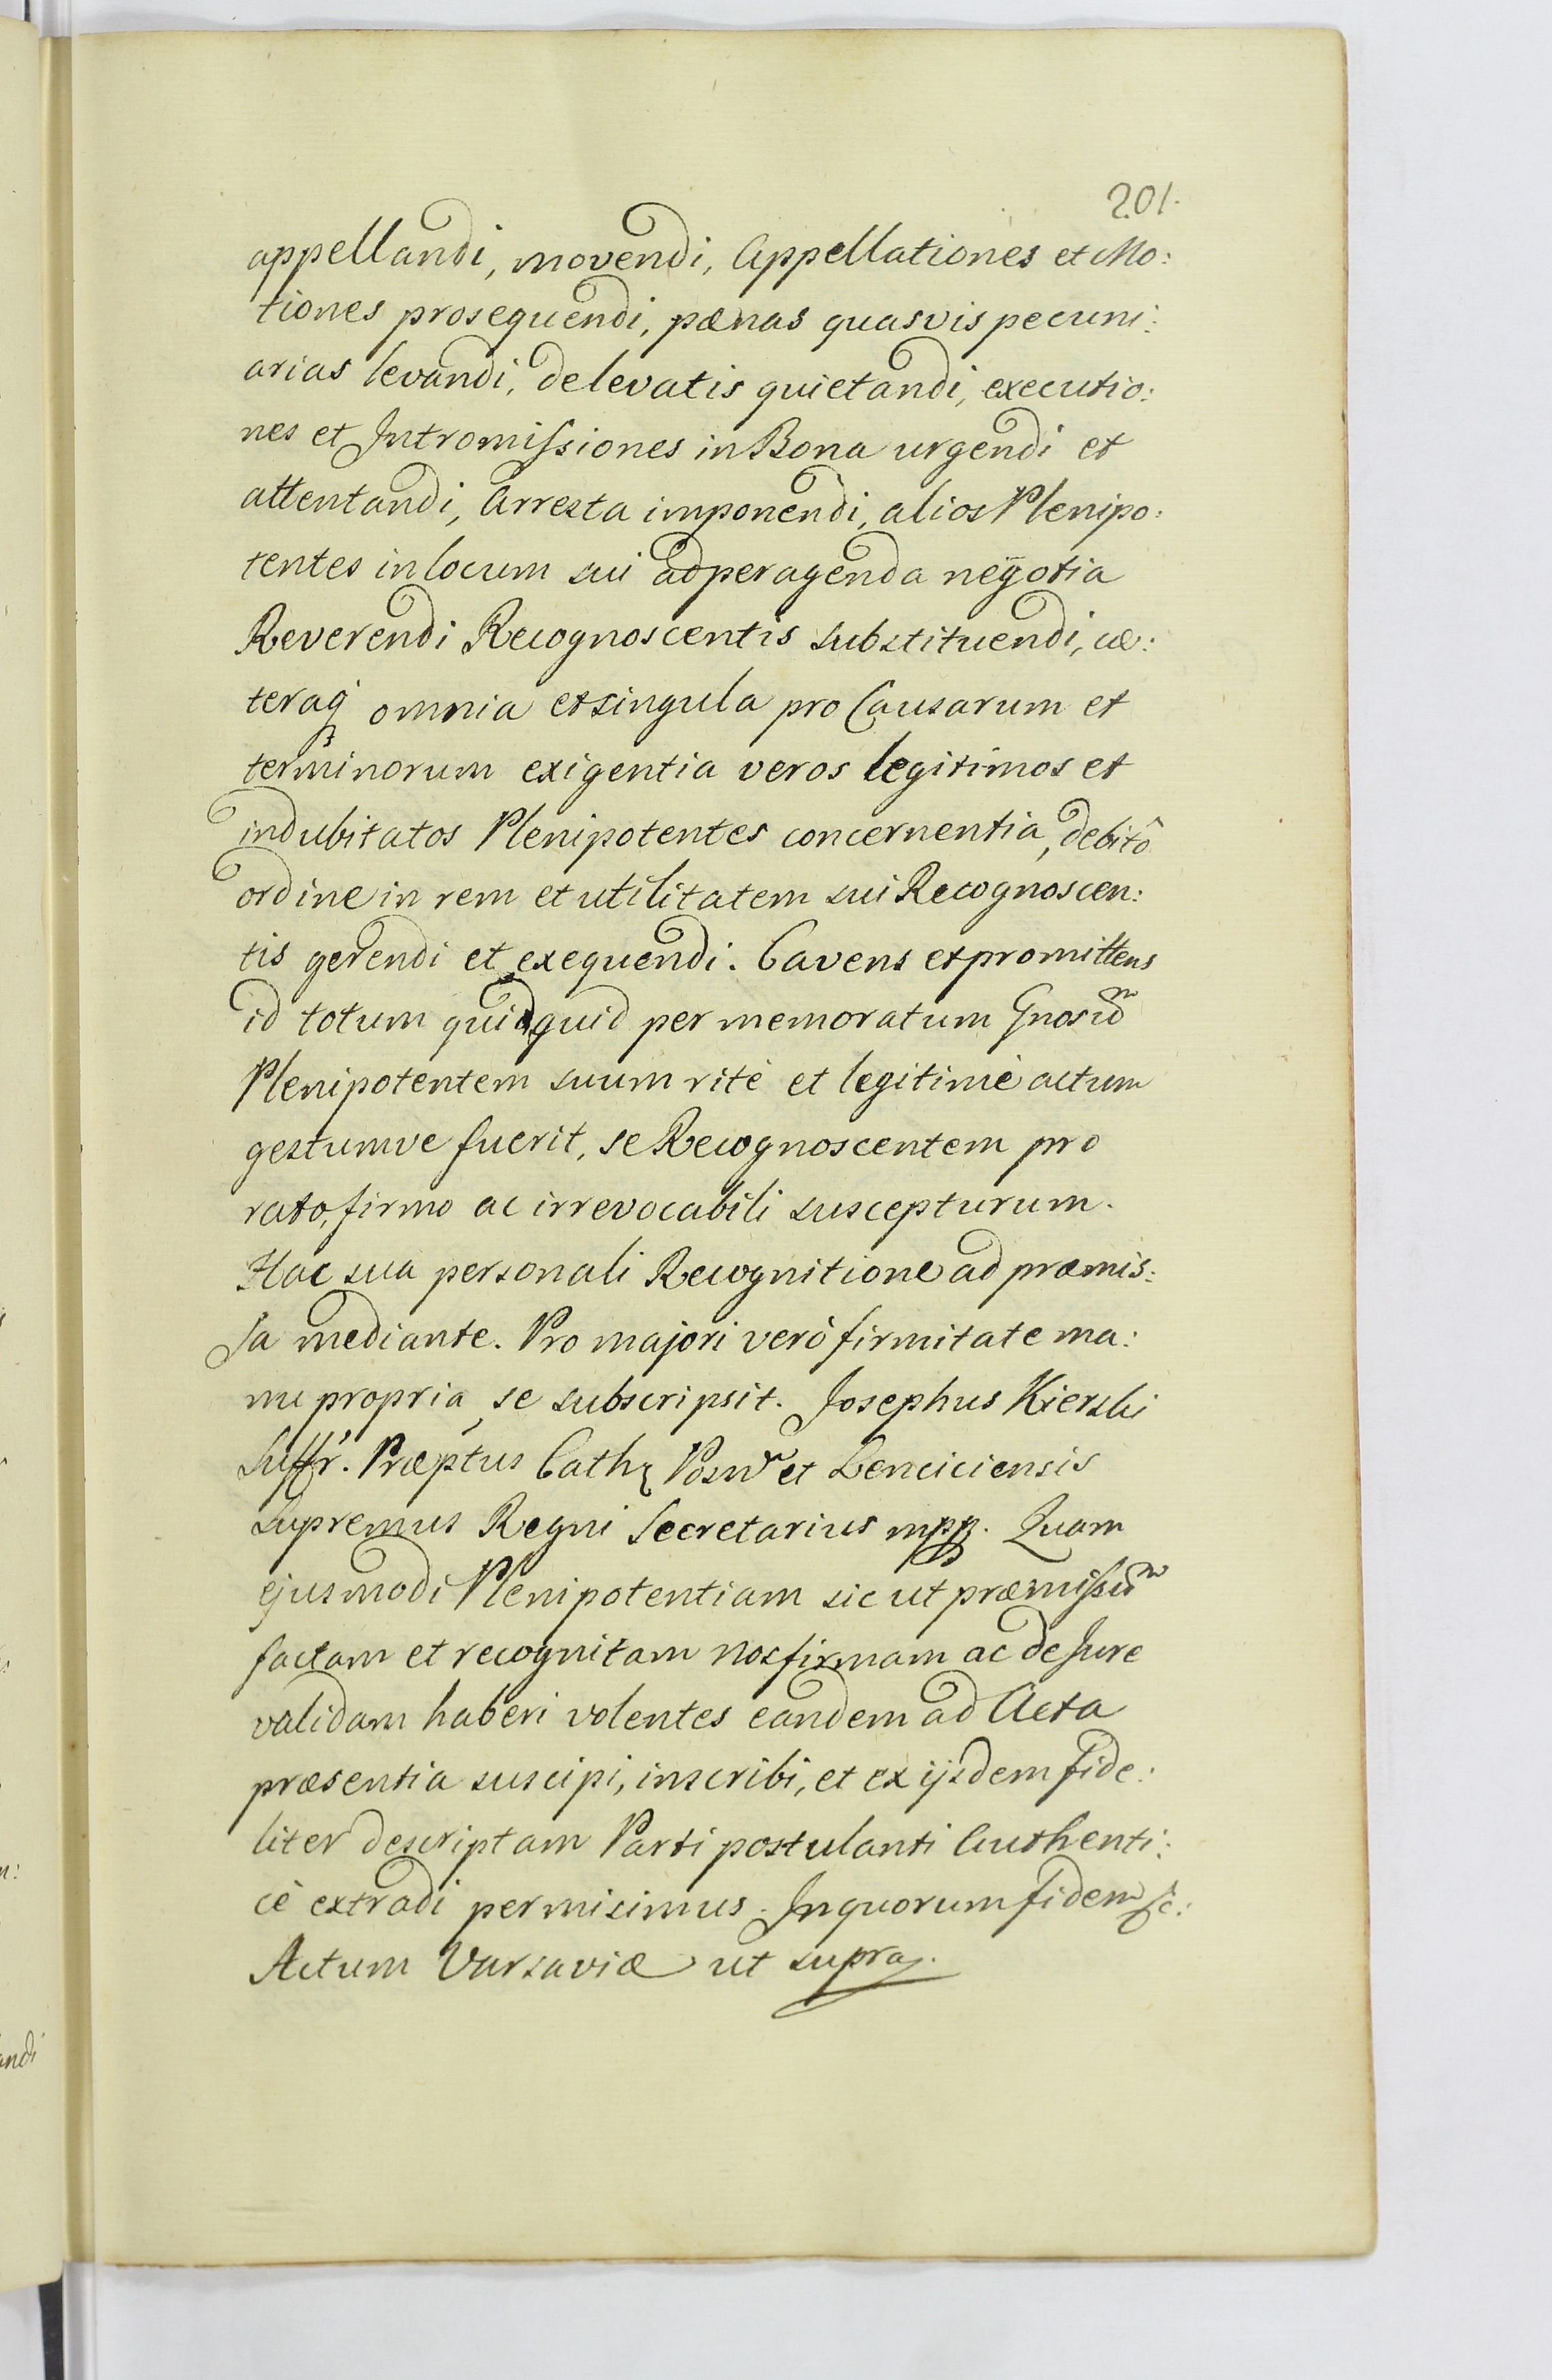 201.
appellandi, movendi, Appellationes et Mo:
tiones prosequendi, pænas quasvis pecuni:
arias levandi, de levatis quietandi, executio:
nes et Intromissiones in Bona urgendi et
attentandi, Arresta imponendi, alios Plenipo:
tentes in locum sui ad peragenda negotia
Reverendi Recognoscentis substituendi, cæ:
teraq; omnia et singula pro Causarum et
terminorum exigentia veros legitimos et
indubitatos Plenipotentes concernentia, debitô
ordine in rem et utilitatem sui Recognoscen:
tis gerendi et exequendi. Cavens et promittens
id totum quidquid per memoratum Gnosum
Plenipotentem suum ritè et legitimè actum
gestumve fuerit, se Recognoscentem pro
rato, firmo ac irrevocabili suscepturum.
Hac sua personali Recognitione ad præmis:
sa mediante. Pro majori verò firmitate ma:
nu propria se subscripsit. Josephus Kierski
Suffr. Præptus Cath Posn et Lenciciensis
Supremus Regni Secretarius mpp. Quam
ejusmodi Plenipotentiam sic ut præmissum
factam et recognitam nos firmam ac de Jure
validam haberi volentes eandem ad Acta
præsentia suscipi, inscribi, et ex ijsdem fide:
liter descriptam Parti postulanti Authenti:
cè extradi permisimus. In quorum fidem &c:
Actum Varsaviæ ut supra.
andi